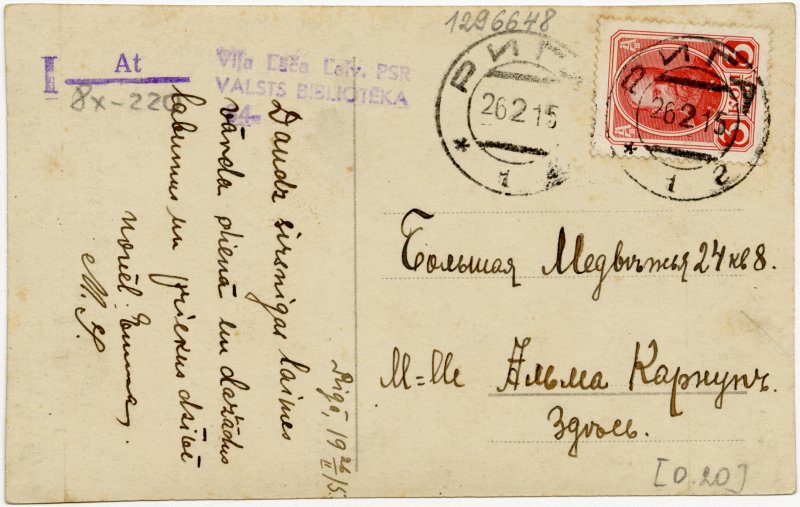 1296648
I At
8x-220
Viļa Lača Latv. PSR
VALSTS BIBLIOTĒKA
РИГА
26 2 15
* 1 2
РИГА
26 2 15
* 1 2
3 КОП
Daudz sirsnigas laimes
vārda dienā un dažādus
labumus un priekus dzīvē
novēl. Emma,
M. S.
Rīgā, 19 26/II 15.
Большая Медвѣжья 24 кв 8.
M=lle Альма Карнупъ.
Здѣсь.
[0.20]